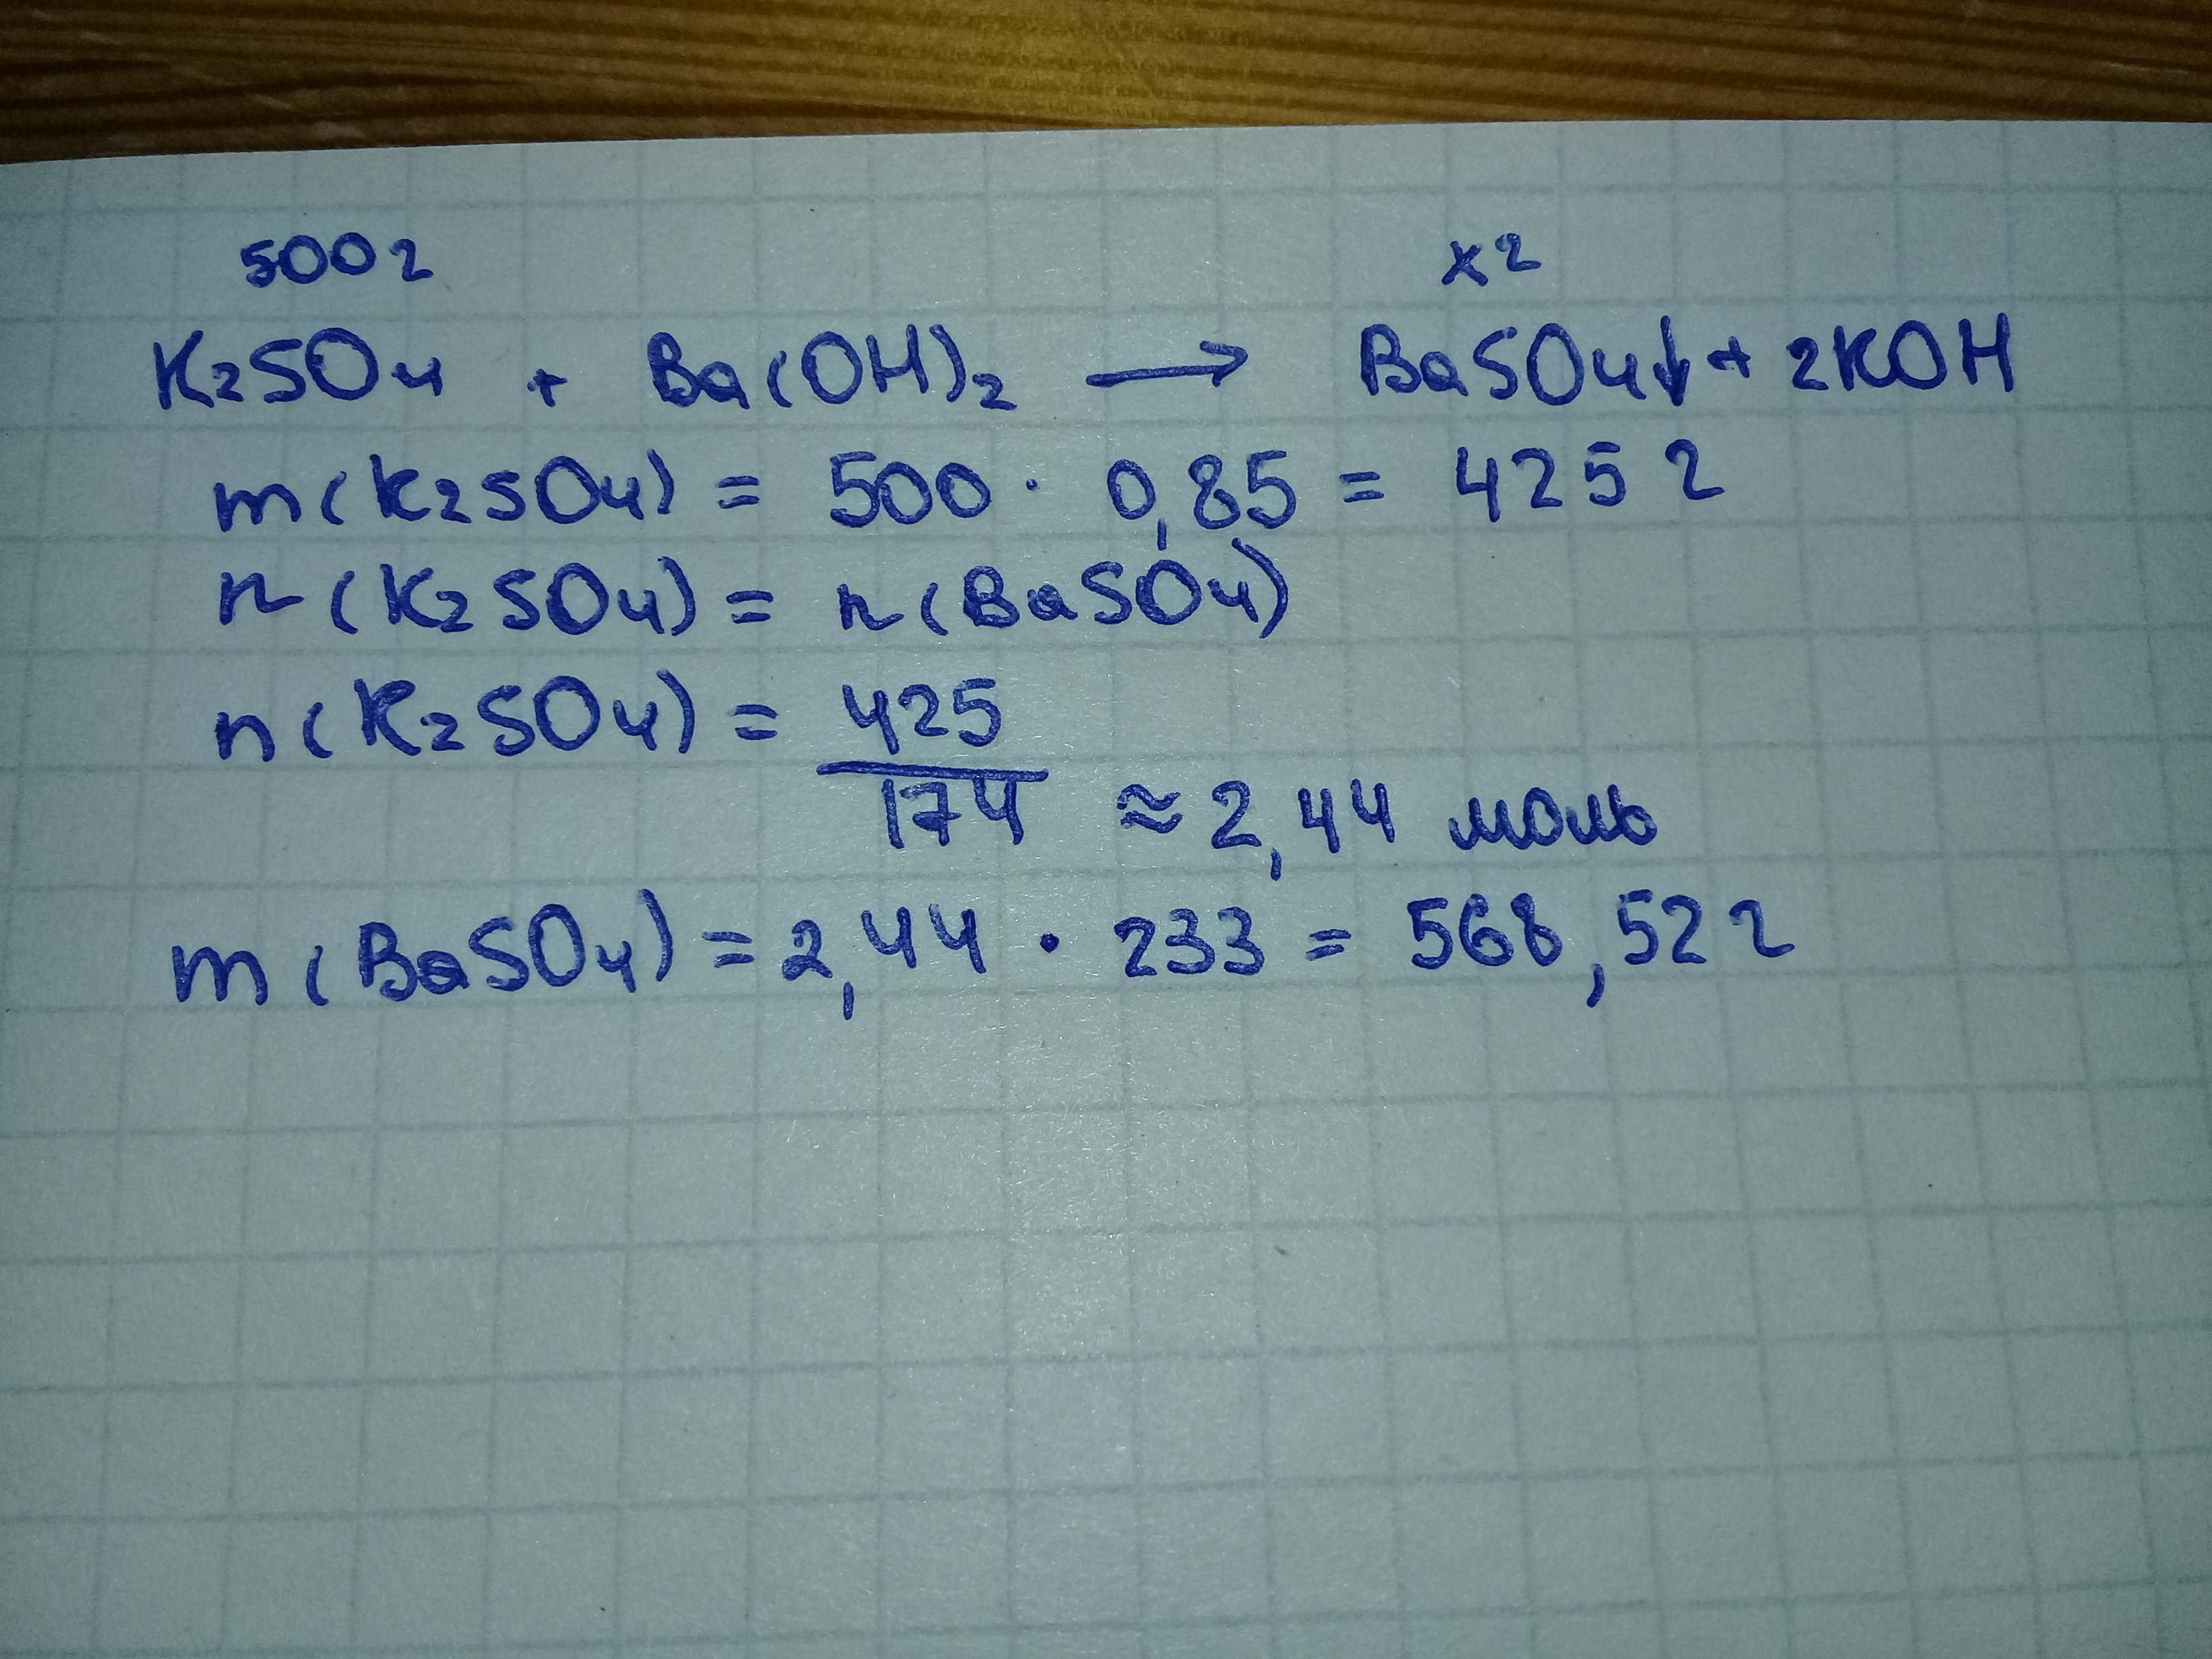 500г xг
K₂SO₄ + Ba(OH)₂ → BaSO₄↓ + 2KOH
m(K₂SO₄) = 500 · 0,85 = 425 г
n(K₂SO₄) = n(BaSO₄)
n(K₂SO₄) = 425/174 ≈ 2,44 моль
m(BaSO₄) = 2,44 · 233 = 568,52 г